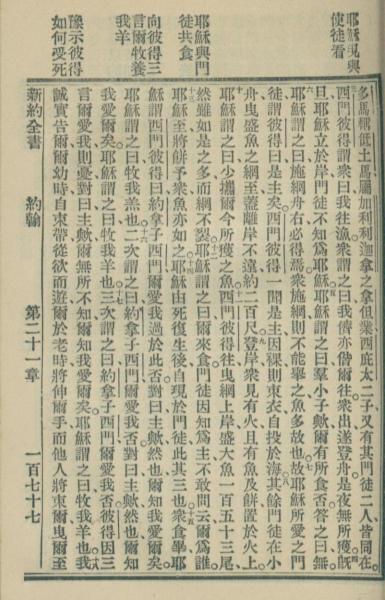 耶穌現與
使徒看
耶穌與門
徒共食
向彼得三
言爾牧養
我羊
豫示彼得
如何受死
多馬稱低土馬屬加利利迦拿之拿但業西庇太二子又有其門徒二人皆同在
西門彼得謂衆曰我往漁衆謂之曰我儕亦偕爾往衆出遂登舟是夜無所獲旣
旦耶穌立於岸門徒不知爲耶穌耶穌謂之曰羣小子歟爾有所食否答之曰無
耶穌謂之曰施網舟右必得焉衆施網則不能舉之魚多故也故耶穌所愛之門
徒謂彼得曰是主矣西門彼得一聞是主因裸則束衣自投於海其餘門徒在小
舟曳盛魚之網至蓋離岸不遠約二百尺登岸衆見有火且有魚及餅置於火上
耶穌謂之曰少攜爾今所獲之魚西門彼得往曳網上岸盛大魚一百五十三尾
然雖如是之多而網不裂耶穌謂之曰爾來食門徒因知爲主不敢問云爾爲誰
耶穌至將餅予衆魚亦如之耶穌由死復生後自現於門徒此其三也衆食畢耶
穌謂西門彼得曰約拿子西門爾愛我過於此否對曰主歟然也爾知我愛爾矣
耶穌謂之曰牧我羔也二次謂之曰約拿子西門爾愛我否對曰主歟然也爾知
我愛爾矣耶穌謂之曰牧我羊也三次謂之曰約拿子西門爾愛我否彼得因三
言爾愛我則憂對曰主歟爾無所不知爾知我愛爾矣耶穌謂之曰牧我羊也我
誠實告爾爾幼時自束帶從欲而遊爾於老時將伸爾手而他人將束爾曳爾至
新約全書 約翰 第二十一章 一百七十七